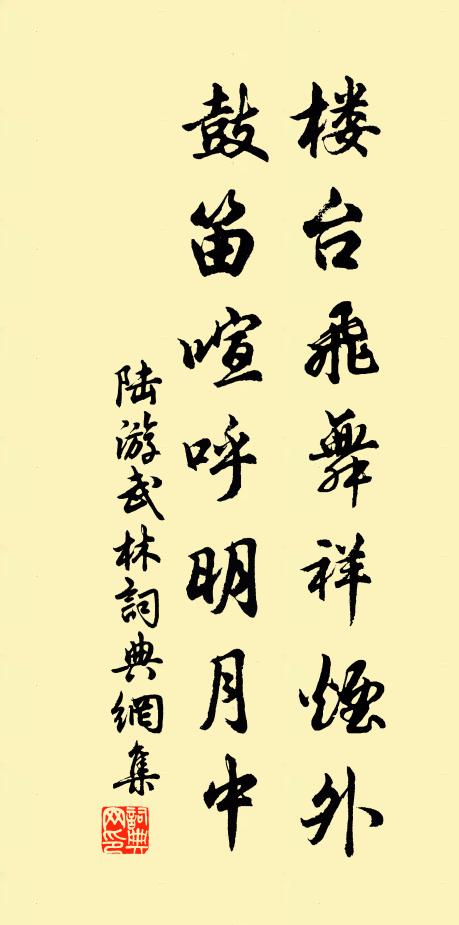 楼台飛舞祥煙外
鼓笛喧呼明月中
陆游武林詞典網集
詞典网印